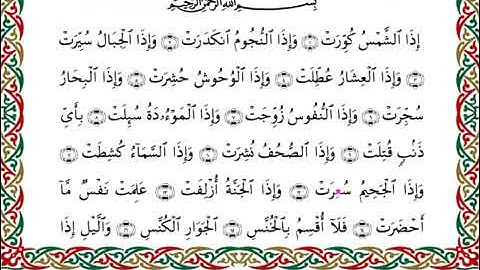 بِسْمِ اللَّهِ الرَّحْمَٰنِ الرَّحِيمِ
إِذَا ٱلشَّمْسُ كُوِّرَتْ ۝١ وَإِذَا ٱلنُّجُومُ ٱنكَدَرَتْ ۝٢ وَإِذَا ٱلْجِبَالُ سُيِّرَتْ
۝٣ وَإِذَا ٱلْعِشَارُ عُطِّلَتْ ۝٤ وَإِذَا ٱلْوُحُوشُ حُشِرَتْ ۝٥ وَإِذَا ٱلْبِحَارُ
سُجِّرَتْ ۝٦ وَإِذَا ٱلنُّفُوسُ زُوِّجَتْ ۝٧ وَإِذَا ٱلْمَوْءُۥدَةُ سُئِلَتْ ۝٨ بِأَىِّ
ذَنۢبٍ قُتِلَتْ ۝٩ وَإِذَا ٱلصُّحُفُ نُشِرَتْ ۝١٠ وَإِذَا ٱلسَّمَآءُ كُشِطَتْ ۝١١
وَإِذَا ٱلْجَحِيمُ سُعِّرَتْ ۝١٢ وَإِذَا ٱلْجَنَّةُ أُزْلِفَتْ ۝١٣ عَلِمَتْ نَفْسٌ مَّآ
أَحْضَرَتْ ۝١٤ فَلَآ أُقْسِمُ بِٱلْخُنَّسِ ۝١٥ ٱلْجَوَارِ ٱلْكُنَّسِ ۝١٦ وَٱلَّيْلِ إِذَا